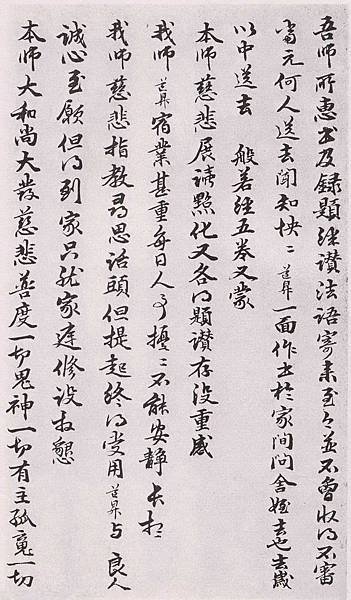 吾師所惠書及錄題經讚法語寄来至今並不曾收得不審
當元何人送去聞知怏〻道昇一面作書於家間問舍姪去也去歲
以中送去 般若經五卷又蒙
本師慈悲展誦點化又各得題讚存没重感
我師道昇宿業甚重每日人事擾〻不能安靜長想
我師慈悲指教尋思話頭但提起終得受用道昇与 良人
誠心至願但得到家只就家庭修設拜懇
本師大和尚大發慈悲普度一切鬼神一切有主孤魂一切